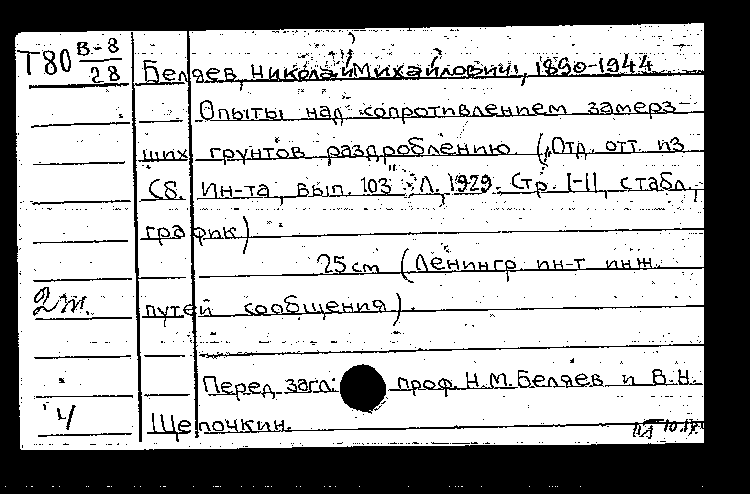 Т80 В-8/28
Беляев, Николай Михайлович, 1890-1944
Опыты над сопротивлением замерз-
ших грунтов раздроблению. („Отд. отт. из
Сб. Ин-та, вып. 103" Л., 1929. Стр. 1-11, с табл.,
график)
25 cm (Ленингр. ин-т инж.
2т.
путей сообщения).
Перед загл: проф. Н.М. Беляев и В.Н.
Щепочкин.
Ч